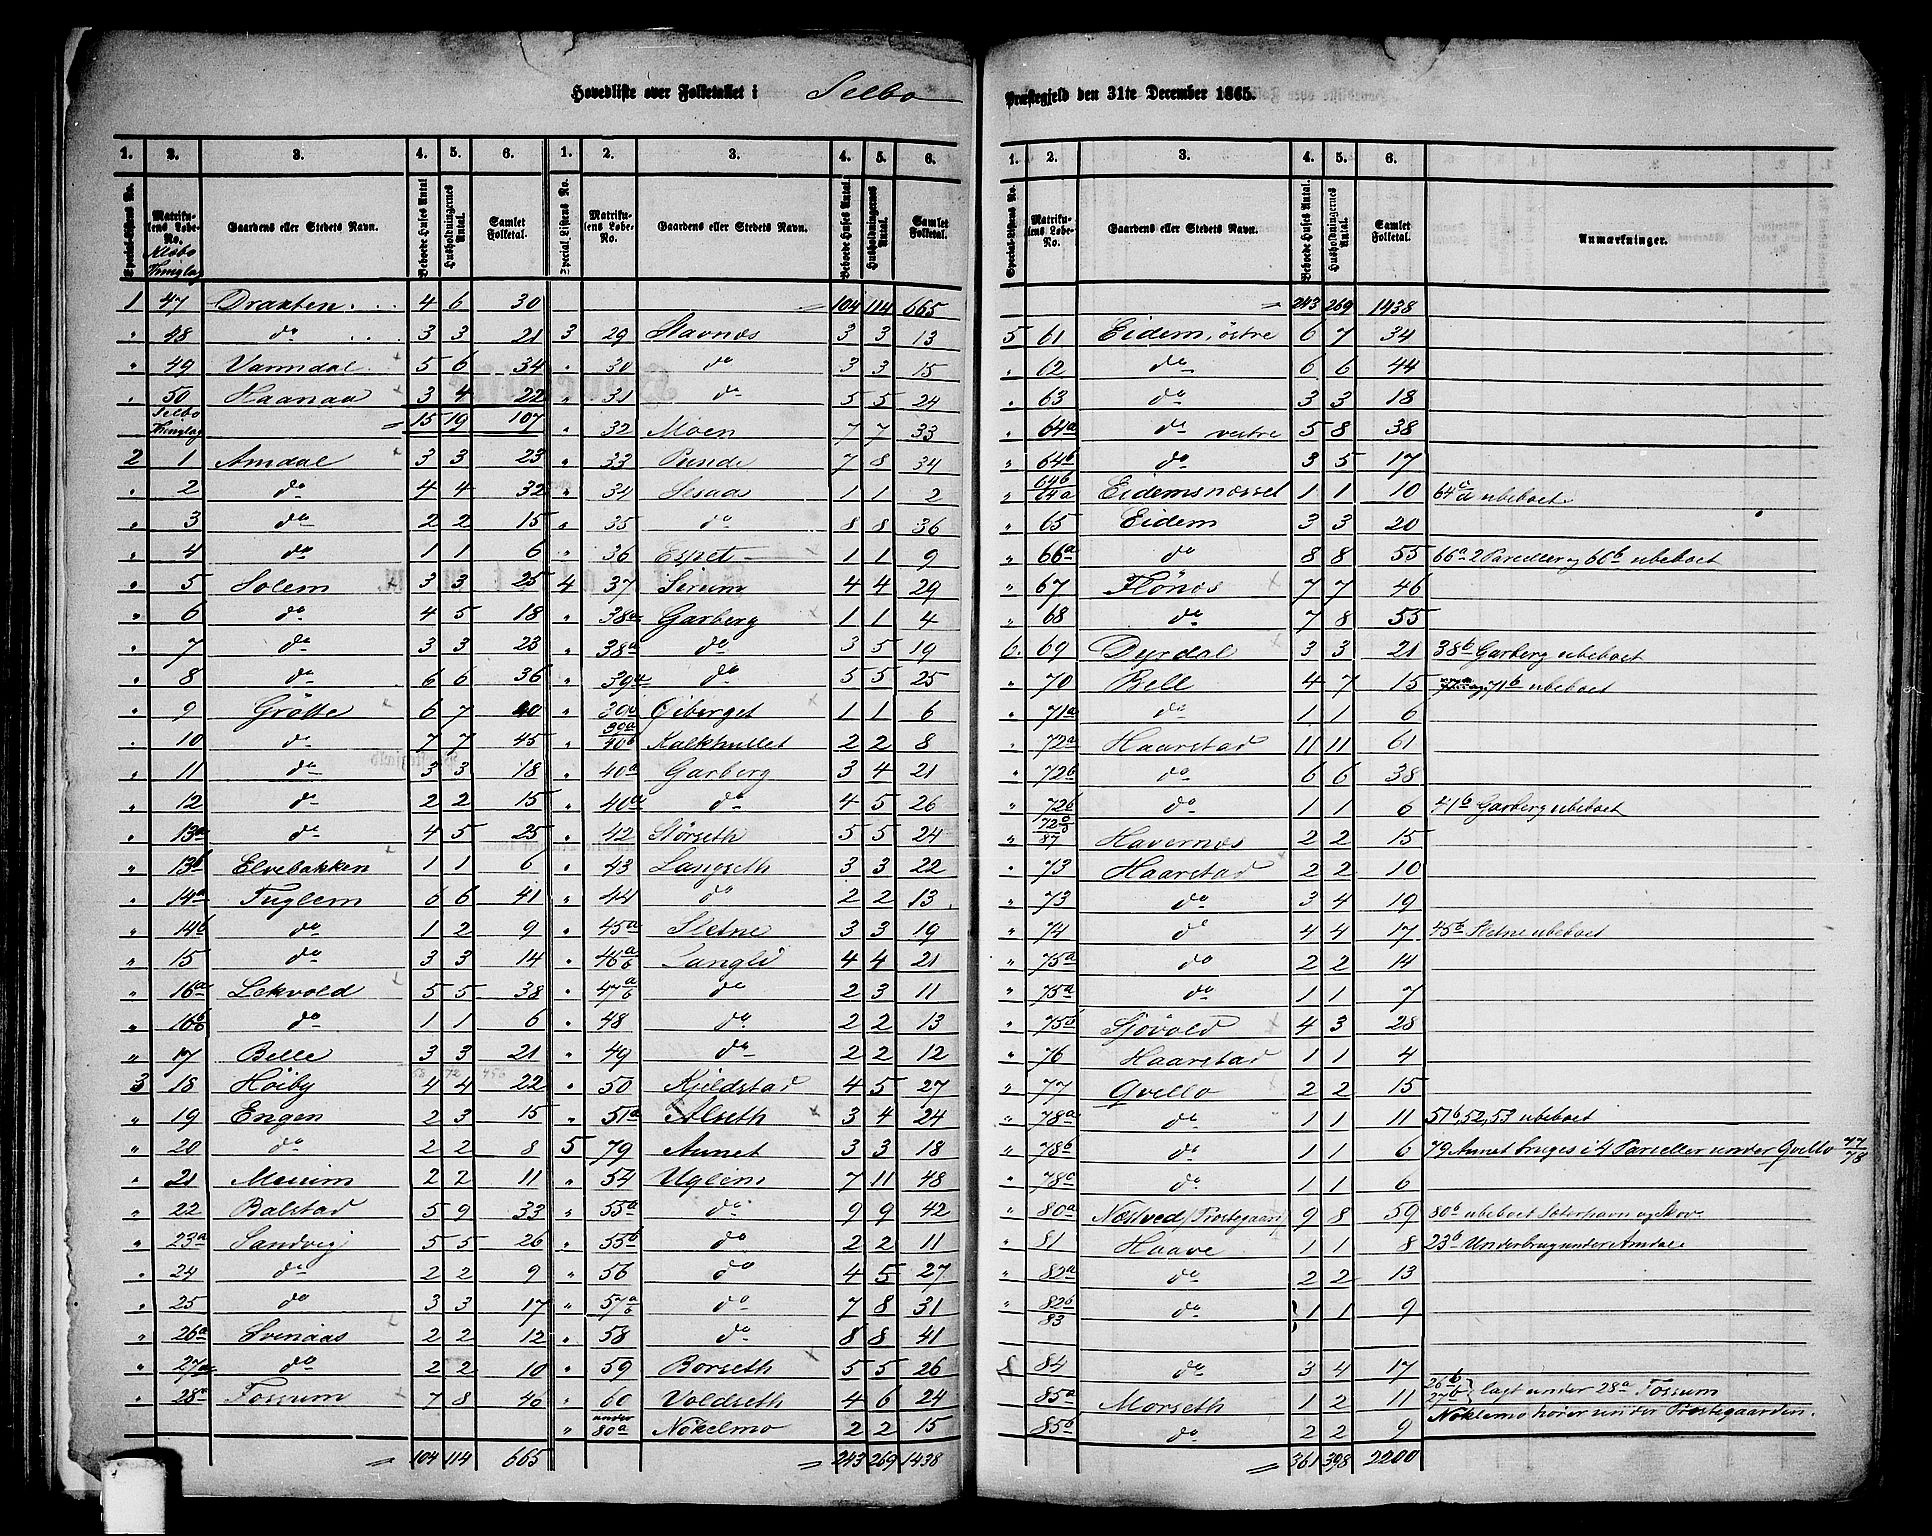 Hovedliste over Folketallet i Selbo Præstegjeld den 31te December 1865.
1. 2. 3. 4. 5. 6. 1. 2. 3. 4. 5. 6.
Special-Listens No. Matrikulens Løbe-No. Gaardens eller Stedets Navn. Beboede Huses Antal Husholdningernes Antal. Samlet Folketal. Special Listens No. Matrikulens Løbe-No. Gaardens eller Stedets Navn. Beboede Huses Antal. Husholdningernes Antal. Samlet Folketal.
Klæbo Thinglag
1 47 Draxten 4 6 30
" 48 do 3 3 21
" 49 Vanndal 5 6 34
" 50 Haanaa 3 4 22
Selbo Thinglag = 15 19 107
2 1 Amdal 3 3 23
" 2 do 4 4 32
" 3 do 2 2 15
" 4 do 1 1 6
" 5 Solem 3 3 25
" 6 do 4 5 18
" 7 do 3 3 23
" 8 do 6 6 36
" 9 Grötte 6 7 40
" 10 do 7 7 45
" 11 do 3 3 18
" 12 do 2 2 15
" 13a do 4 5 25
" 13b Elvebakken 1 1 6
" 14a Fuglem 6 6 41
" 14b do 1 2 9
" 15 do 3 3 14
" 16a Lekvold 5 5 38
" 16b do 1 1 6
" 17 Belle 3 3 21
58 72 456
3 18 Höiby 4 4 22
" 19 Engen 2 3 15
" 20 do 2 2 8
" 21 Merum 2 2 11
" 22 Balstad 5 9 33
" 23a Sandvig 5 5 26
" 24 do 2 2 9
" 25 do 3 3 17
" 26a Svinaas 2 2 12
" 27a do 2 2 10
" 28a Fossum 7 8 40
= 104 114 665
= 104 114 665
3 29 Stavnæs 3 3 13
" 30 do 3 3 15
" 31 do 5 5 24
" 32 Moen 7 7 33
" 33 Punde 7 8 34
" 34 Sesaas 1 1 2
" 35 do 8 8 36
" 36 Espet 1 1 9
4 37 Sirum 4 4 29
" 38a Garberg 1 1 4
" 38a do 3 5 19
" 39a do 5 5 25
" Öiberget 1 1 6
" 39a/40b Kalkhullet 2 2 8
" 40a Garberg 3 4 21
" 40a do 4 5 26
" 42 Störseth 5 5 24
" 43 Langseth 3 3 22
" 44 do 2 2 13
" 45a Sletne 3 3 19
" 46a/b Langli 4 4 21
" 47a/b do 2 3 11
" 48 do 2 2 13
" 49 do 2 2 12
" 50 Kjeldstad 4 5 27
" 51a Alseth 3 4 24
5 79 Aunet 3 3 18
" 54 Uglem 7 11 48
" 55a do 9 9 42
" 55b do 2 2 11
" 56 do 4 5 27
" 57a/b do 7 8 31
" 58 do 8 8 41
" 59 Borseth 5 5 26
" 60 Voldseth 4 6 24
" under 80a Nokelmo 2 2 15
= 243 269 1438
1. 2. 3. 4. 5. 6.
Special-Listens No. Matrikulens Løbe-No. Gaardens eller Stedets Navn. Beboede Huses Antal. Husholdningernes Antal. Samlet Folketal. Anmærkninger.
= 243 269 1438
5 61 Eidem, östre 6 7 34
" 62 do 6 6 44
" 63 do 3 3 18
" 64a do vestre 5 8 38
" 64b do 3 5 17
" 64b/64a Eidemsnæsset 1 1 10 64c/d ubeboet.
" 65 Eidem 3 3 20
" 66a do 8 8 55 66a 2 Parceller og 66b ubeboet
" 67 Flönes 7 7 46
" 68 do 7 8 55
6. 69 Dyrdal 3 3 21 38b Garberg ubeboet
" 70 Bell 4 7 15 71b ubeboet
" 71a do 1 1 6
" 72a Haarstad 11 11 61
" 72b do 6 6 38
" 72b do 1 1 6 41b Garberg ubeboet
" 72a/87 Havernæs 2 2 15
" 73 Haarstad 2 2 10
" 73 do 3 4 19
" 74 do 4 4 17 45b Sletne ubeboet
" 75a do 2 2 14
" 75a do 1 1 7
" 75b Sjövold 4 3 28
" 76 Haarstad 1 1 4
" 77 Qvello 2 2 15
" 78a do 1 1 11 51b, 52, 53 ubeboet
" 78b do 1 1 6 79 Aunet bruges i 4 Parceller under Qvello 77/78
" 78c do 1 1 6
" 80a Næstved/Præstegaard 9 8 59 80b ubeboet Sæterhavn og Skov.
" 81 Haave 1 1 8 23b Underbrug under Amdal
" 82a do 2 2 13
" 82b/83 do 1 1 9
84 do 3 4 17
" 85a Morseth 1 2 11 26b 27b } lagt under 28a Fossum
" 85b do 2 2 9 Noklemo hører under Præstegaarden.
= 361 398 2200